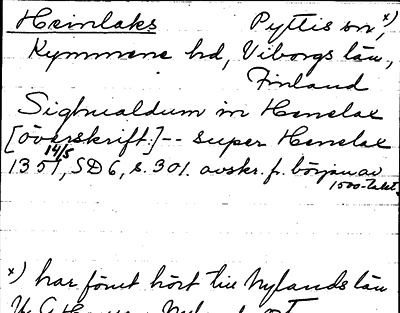 Heinlaks Pyttis sn, x)
Kymmene hd, Viborgs län,
Finland
Sighualdum in Henelax
[överskrift:] -- super Henelax
14/5
1351, SD 6, s. 301. avskr. fr. början av
1500-talet.
x) har förut hört till Nylands län